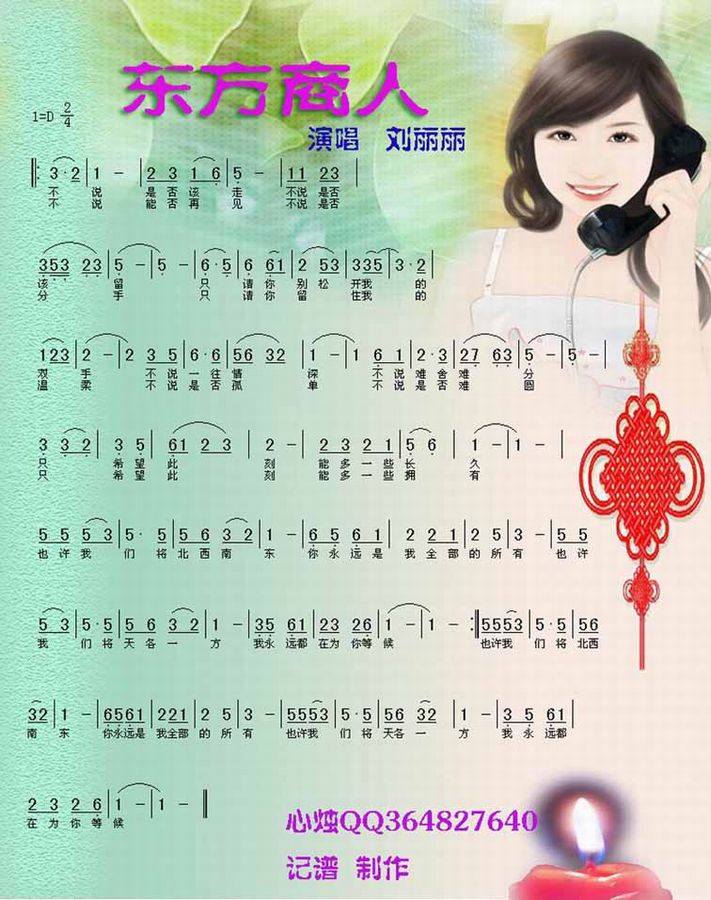 东方商人
1=D 2/4
演唱 刘丽丽
3·2 | 1 - | 2 3 1 6 | 5 - | 11 23 |
不 说 是否该 走 不说是否
不 说 能否再 见 不说是否
353 23 | 5 - | 5 - | 6·5 | 6 61 | 2 53 | 335 | 3·2 |
该 留 只 请你 别松 开我 的
分 手 只 请你 留 住我 的
123 | 2 - | 2 3 5 | 6·6 | 56 32 | 1 - | 1 6 1 | 2·3 | 27 63 | 5 - | 5 - |
双 手 不说 一往 情 深 不说 难舍 难 分
温 柔 不说 是否 孤 单 不说 是否 难 圆
3 3 2 | 3 5 | 61 2 3 | 2 - | 2 3 2 1 | 5 6 | 1 - | 1 - |
只 希望 此 刻 能多一些 长 久
只 希望 此 刻 能多一些 拥 有
5 5 5 3 | 5· 5 | 5 6 3 2 | 1 - | 6 5 6 1 | 2 2 1 | 2 5 | 3 - | 5 5
也许我 们 将北西南 东 你永远是 我全部的所有 也许
5 3 | 5·5 | 5 6 3 2 | 1 - | 35 61 | 23 26 | 1 - | 1 - :‖ 5553 | 5·5 | 56
我 们将天各一 方 我永远都在为你等候 也许我 们将北西
32 | 1 - | 6561 | 221 | 2 5 | 3 - | 5553 | 5·5 | 56 32 | 1 - | 3 5 61 |
南 东 你永远是 我全部 的所 有 也许我 们 将天各一 方 我 永远都
2 3 2 6 | 1 - | 1 - ‖
在为你等 候
心烛QQ364827640
记谱 制作